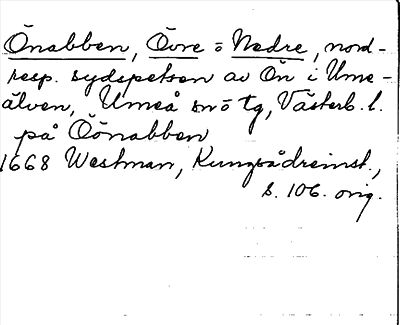 Önabben, Övre o Nedre, nord-
resp. sydspetsen av Ön i Ume-
älven, Umeå sn o tg, Västerb. l.
på Öönabben
1668 Westman, Kungsådreinst.,
s. 106. orig.